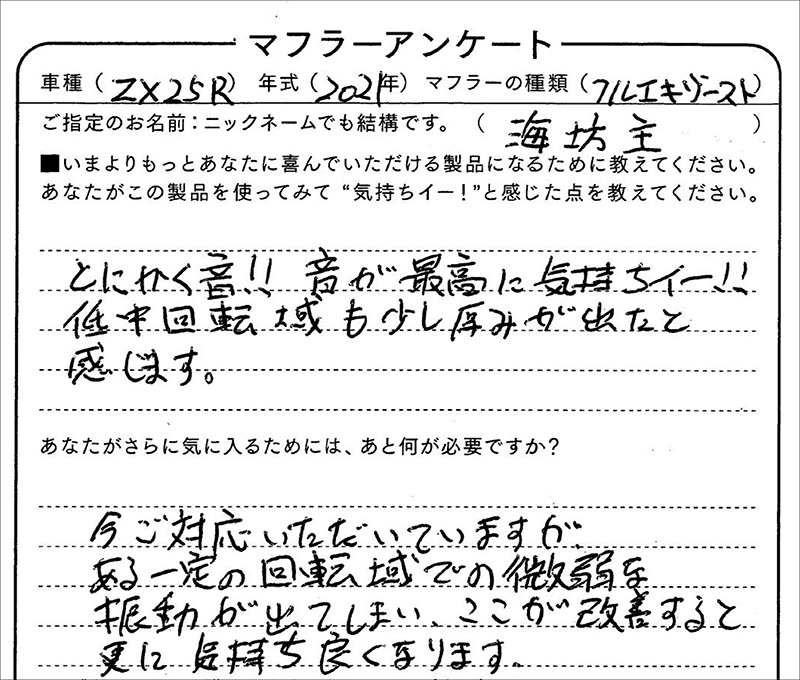 マフラーアンケート
車種（ZX25R）年式（2021年）マフラーの種類（フルエキゾースト）
ご指定のお名前：ニックネームでも結構です。（海坊主）
■いまよりもっとあなたに喜んでいただける製品になるために教えてください。
あなたがこの製品を使ってみて“気持ちイー！”と感じた点を教えてください。
とにかく音!! 音が最高に気持ちイー!!
低中回転域も少し厚みが出たと
感じます。
あなたがさらに気に入るためには、あと何が必要ですか？
今ご対応いただいていますが、
ある一定の回転域での微弱な
振動が出てしまい、ここが改善すると
更に気持ち良くなります。